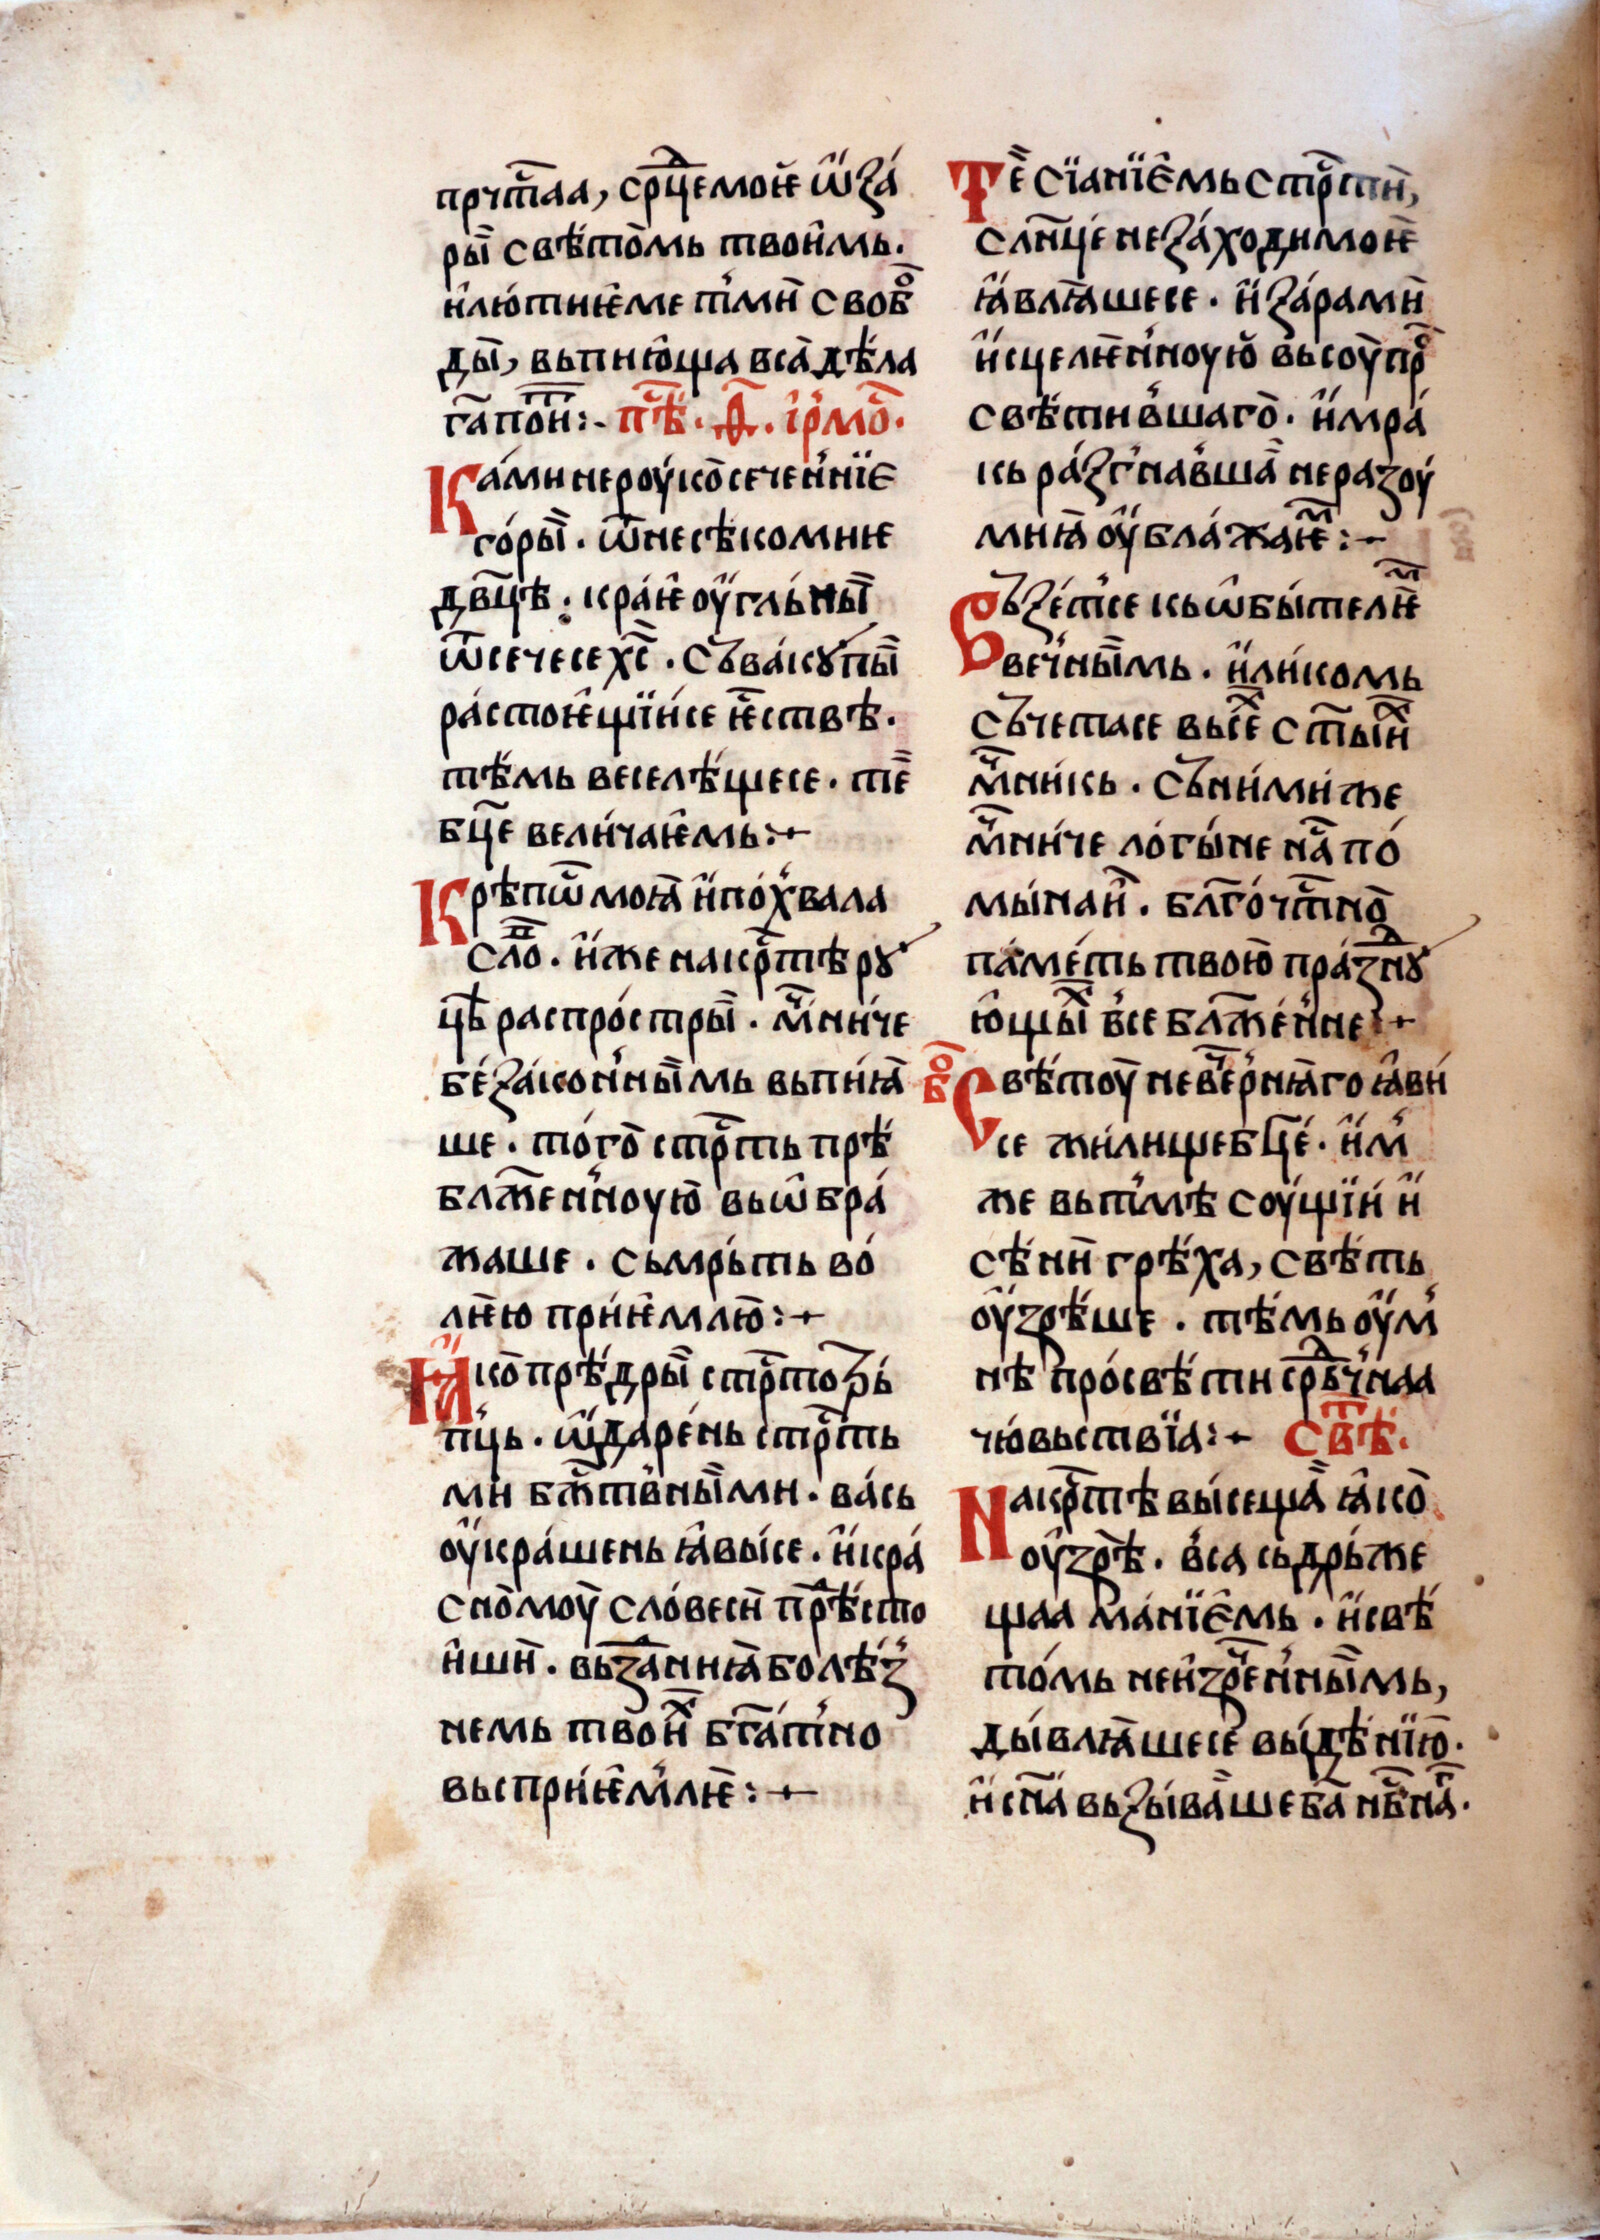 прч҃таа, срⷣцемоѥ ѡ҆за́
ры̀ свѣ́томь твои҆мь.
и҆лю́тиѥме тмы̀ своⷠ
ды̀, вьпию҆ща всꙗ̀ дѣ́ла
га҃ поⷮи:- пѣ҃. ѳ҃. і҆рмо̀.
Ка́ми неро́укосеченнїе
го́ры̀. ѿнесѣкомиѥ
дв҃це. кра́ѥ ѹ҆гльны̀
ѿсечесе хс҃. съва́кꙋпы̀
ра́стоѥ҆щїи́се ѥ҆ст҃вѣ.
тѣ́мь веселѣ́щесе. тѐ
бц҃е вели́чаѥ҆мь:+
Крѣпо҃ моꙗ̀ и҆по́хвала
сло҃. и҆же накрⷭтѣ рꙋ
цѣ распро́стры̀. мⷱни́че
бе́за́коннымь вьпи́ꙗ̀
ше. то́го̀ стрⷭть прѣ́
блж҃енноую̀ вьѡ҆бра́
жаше. сьмрьть во́
лѥ́ю при́ѥмлю̀:+
Ꙗ҆ко̀прѣ́дры̀ стрⷭтозрь́
пць. ѡ҆дарень стрⷭть
ми бж҃твнымы. ва́сь
ѹ҆кра́шень ꙗ҆вы́се. и҆кра́
сно́моу̀ сло́веси прѣⷣсто
и҆шѝ. вьзⷣаниꙗ̀ болѣ́з
немь твоиⷯ бга҃тно
вьспри́ѥ҆млѥ̀:+
Тѐ сїанїе҆мь стрⷭти,
слн҃це неза́ходимоѥ
ꙗ҆влꙗ̀шесе. и҆ за́рами
и҆сцелѥнноую̀ вьсоу̀ прⷭ
свѣ́тившаго̀. и҆мра́
кь ра́згнавша̀ неразоу
мниꙗ̀ ѹ҆бла́жаѥⷨ:+
Въземсе кьѡ҆бытелѥⷨ
вечнымь. и҆ликомь
съчетасе высеⷯ ст҃ыиⷯ
мⷱникь. съни́ми же
мⷱни́че ло́гы́не на҃ по́
мынаи҆. благо́чт҃но̀
па́ме́ть твою̀ пра́зⷣнꙋ
ю҆щыⷯ все блж҃енне:+
боⷢ Свѣ́тоу̀ невеⷱ҇рнꙗго ꙗ҆ви́
се жи́лищебц҃е́. и҆м
же вьтмѣ соу́щїи и҆
сѣ́ни грѣ́ха, свѣть
ѹ҆зрѣ́ше. тѣ́мь ѹ҆м
нѣ про́свѣ́ти срⷣьчнаа
чю́вьствїа:+ Свѣⷮ.
Накрⷭтѣ вы́сеща̀ ꙗ҆ко̀
ѹ҆зрѣ̀. вса сьдрьже
щаа ма́нїе҆мь. и҆свѣ́
то́мь неи҆зрⷱеннымь,
ды́влꙗ̀шесе вы́дѣ́нїю̀.
и҆ сн҃а вьзы́ва̀ше ба҃ нб҃на̀.